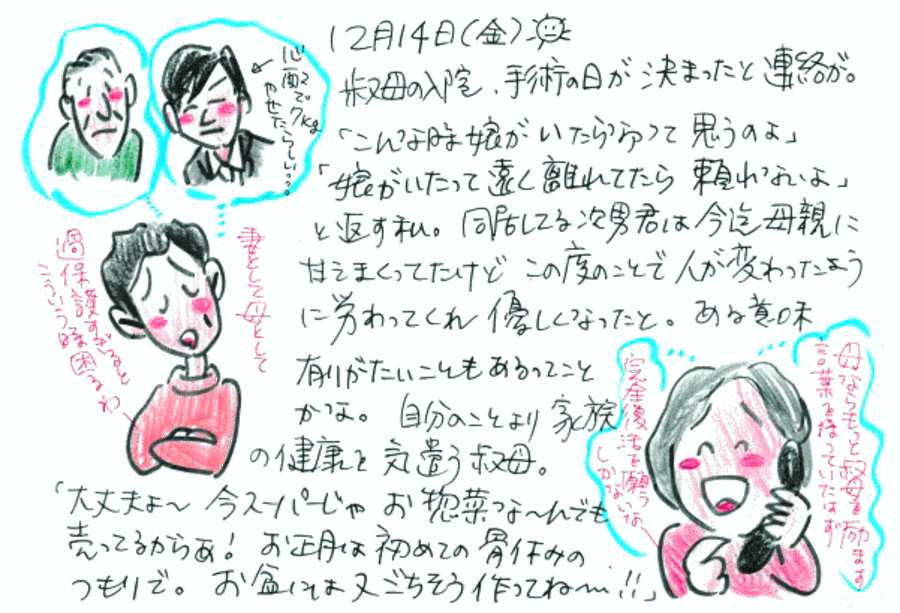 12月14日(金)
叔母の入院、手術の日が決まったと連絡が。
「こんな時娘がいたらなって思うのよ」
「娘がいたって遠く離れてたら頼れないよ」
と返す私。同居してる次男君は今迄母親に
甘えまくってたけどこの度のことで人が変わったよう
に労わってくれ優しくなったと。ある意味
有りがたいこともあるってこと
かな。自分のことより家族
の健康を気遣う叔母。
「大丈夫よ〜今スーパーじゃお惣菜な〜んでも
売ってるからぁ!お正月は初めての骨休みの
つもりで。お盆には又ごちそう作ってね〜!!」
心配で。7kg
やせたらしいっっ。
妻として母として
過保護すぎると
こういう時困るわ
母ならもっと叔母を励ます
言葉を持っていたはず
完全復活を願うな
しかない